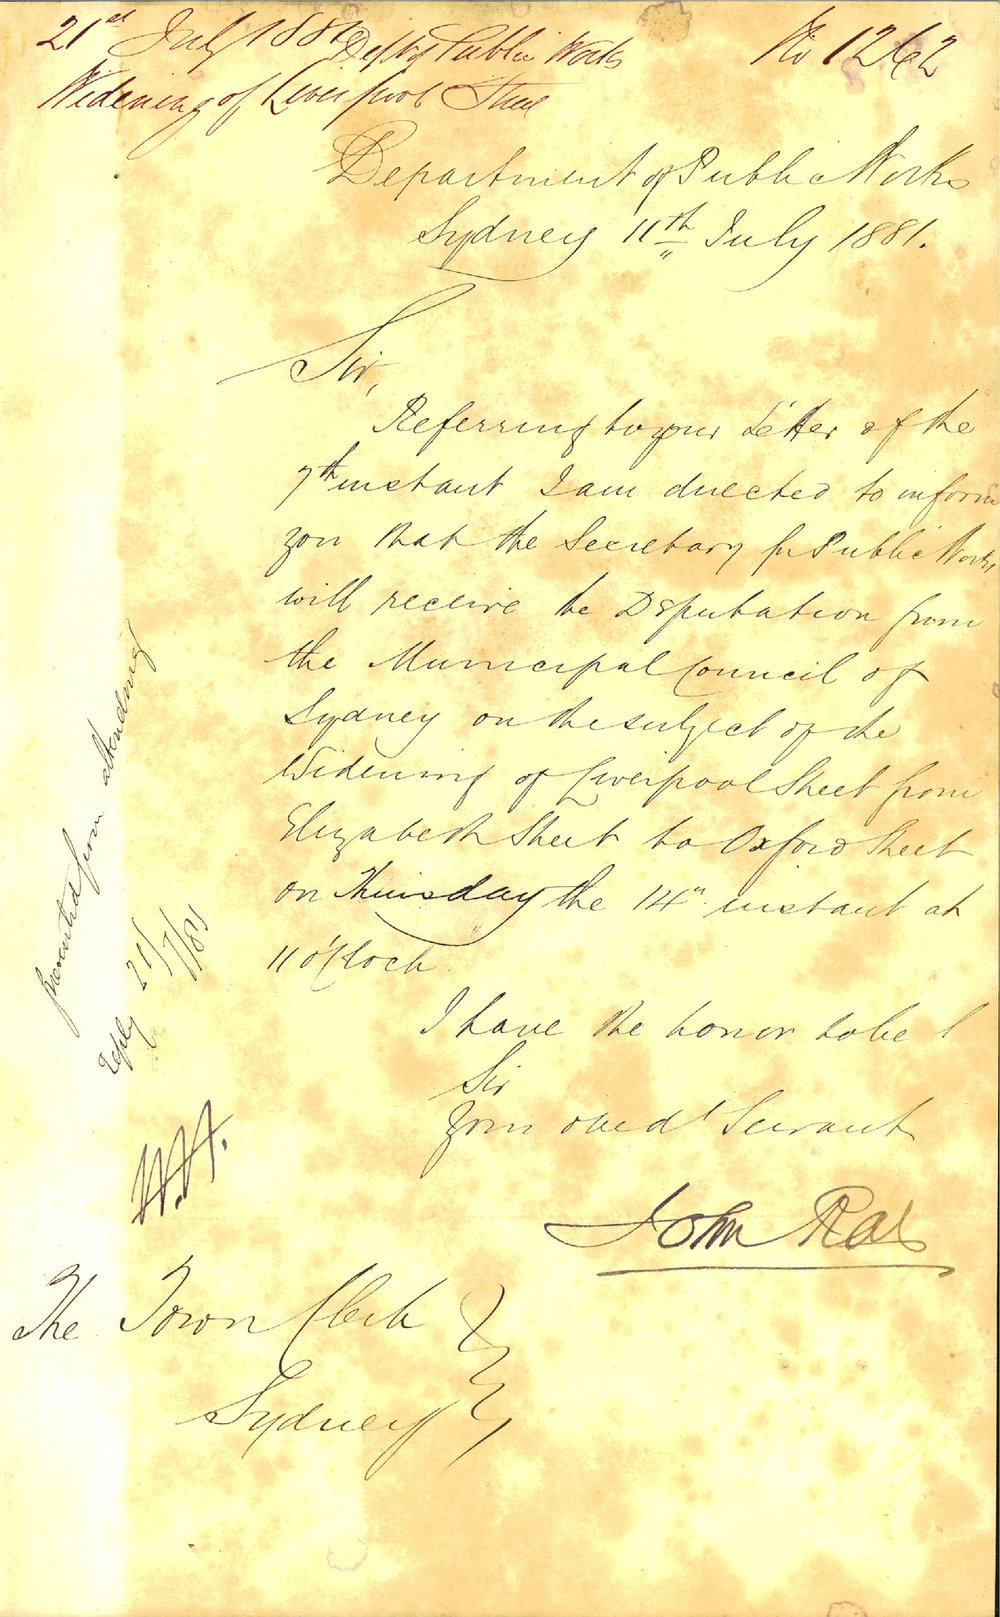 21st July 1881 Dept of Public Works No 1262
Widening of Liverpool Street
Department of Public Works
Sydney 11th July 1881.
Sir,
Referring to your Letter of the
7th instant I am directed to inform
you that the Secretary for Public Works
will receive the Deputation from
the Municipal Council of
Sydney on the subject of the
Widening of Liverpool Street from
Elizabeth Street to Oxford Street
on Thursday the 14th instant at
11 o'Clock
I have the honor to be
Sir
Your obedt Servant
John Rae
The Town Clerk
Sydney
prevented from attending
reply 21/7/81